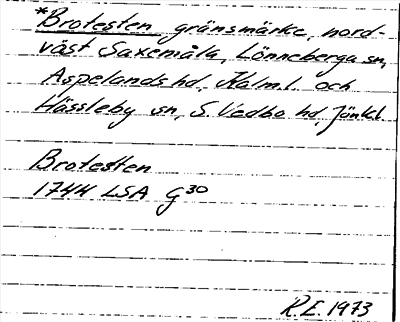 *Brotesten gränsmärke, nord-
väst Saxemåla, Lönneberga sn,
Aspelands hd, Kalm.l. och
Hässleby sn, S. Vedbo hd, Jönk.l.
Brotesten
1744 LSA G30
R.E. 1973